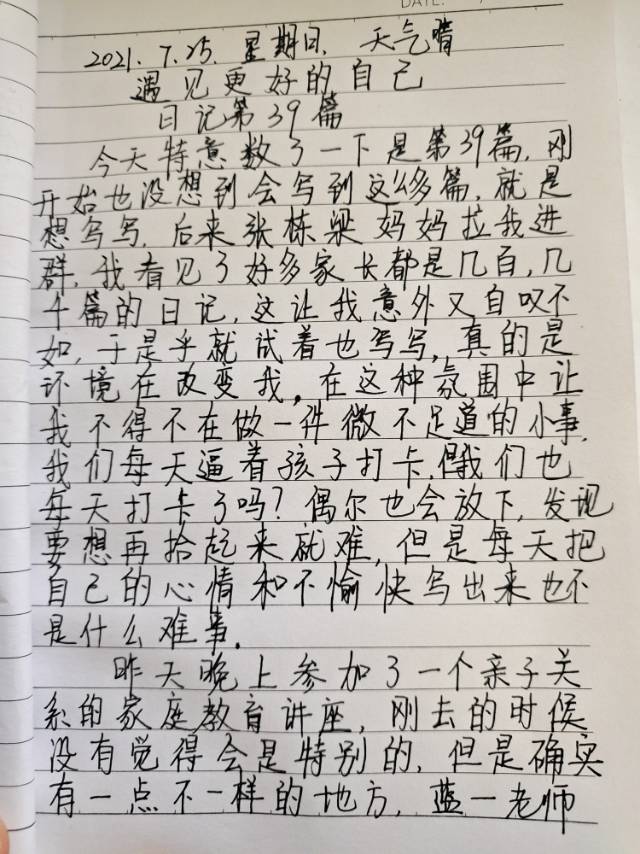 DATE.
2021.7.25. 星期日. 天气晴
遇见更好的自己
日记第39篇
今天特意数了一下是第39篇,刚
开始也没想到会写到这么多篇,就是
想写写,后来张栋梁妈妈拉我进
群,我看见了好多家长都是几百,几
千篇的日记,这让我意外又自叹不
如,于是乎就试着也写写,真的是
环境在改变我,在这种氛围中让
我不得不在做一件微不足道的小事.
我们每天逼着孩子打卡,但我们也
每天打卡了吗?偶尔也会放下,发现
要想再拾起来就难,但是每天把
自己的心情和不愉快写出来也不
是什么难事.
昨天晚上参加了一个亲子关
系的家庭教育讲座,刚去的时候
没有觉得会是特别的,但是确实
有一点不一样的地方,蓝一老师